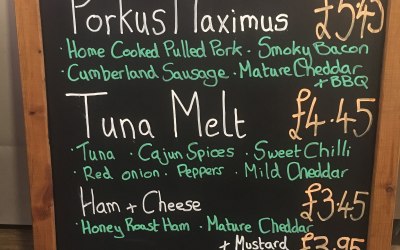 Porkus Maximus £5.45
· Home Cooked Pulled Pork · Smoky Bacon
· Cumberland Sausage · Mature Cheddar
+ BBQ
Tuna Melt £4.45
· Tuna · Cajun Spices · Sweet Chilli
· Red onion · Peppers · Mild Cheddar
Ham + Cheese £3.45
· Honey Roast Ham · Mature Cheddar
+ Mustard £3.95